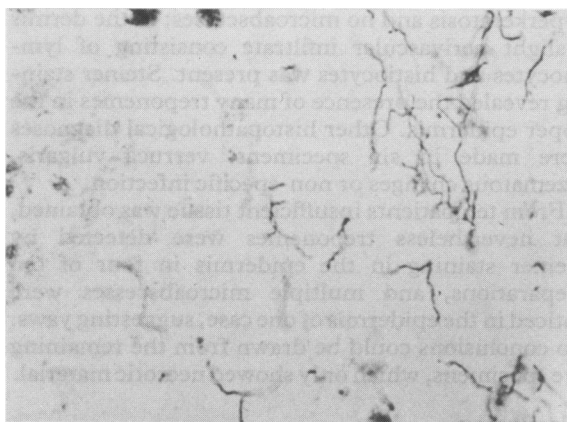 and no microabscesses; the dermis
slight perivascular infiltrate consisting of lym-
and histiocytes was present. Steiner stain-
revealed the presence of many treponemes in the
epidermis. Other histopathological diagnoses
made in six specimens: verruca vulgaris,
changes or non-specific infection.
From ten patients insufficient tissue was obtained,
nevertheless treponemes were detected by
staining in the epidermis in four of the
and multiple microabscesses were
in the epidermis of one case, suggesting yaws.
conclusions could be drawn from the remaining
specimens, which only showed necrotic material.